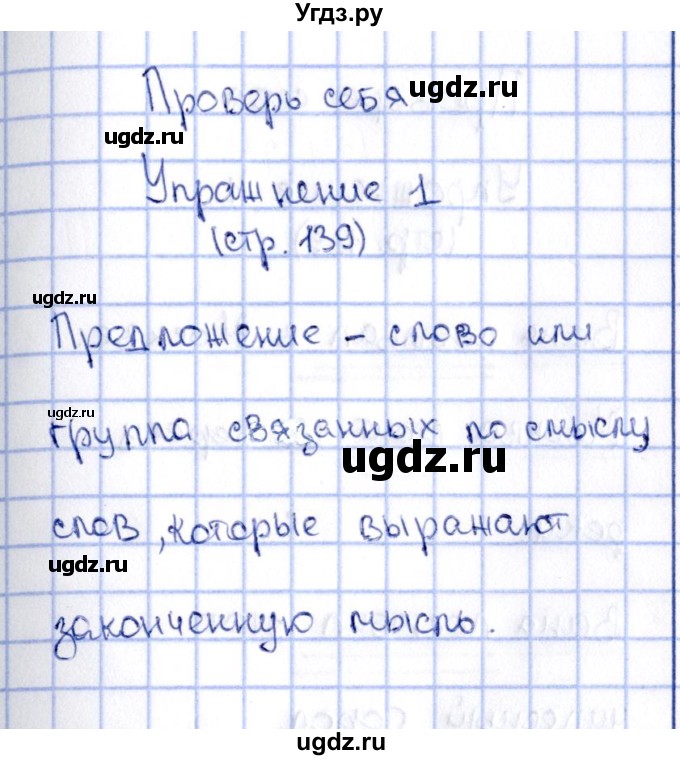 Угдз.ру
Проверь себя ugdz.ru
ugdz.ru
Упражнение 1
(стр. 139)
ugdz.ru
Предложение – слово или
ugdz.ru
группа связанных по смыслу
ugdz.ru
слов, которые выражают
ugdz.ru
законченную мысль.
ugdz.ru